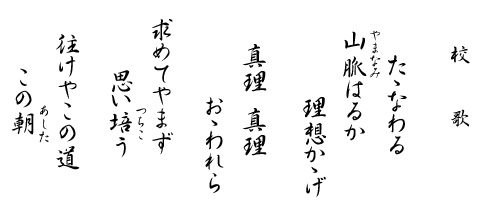 校歌
たゝなわる
山脈はるか
やまなみ
理想かゝげ
真理 真理
おゝわれら
求めてやまず
思い培う
つちこ
往けやこの道
この朝
あした